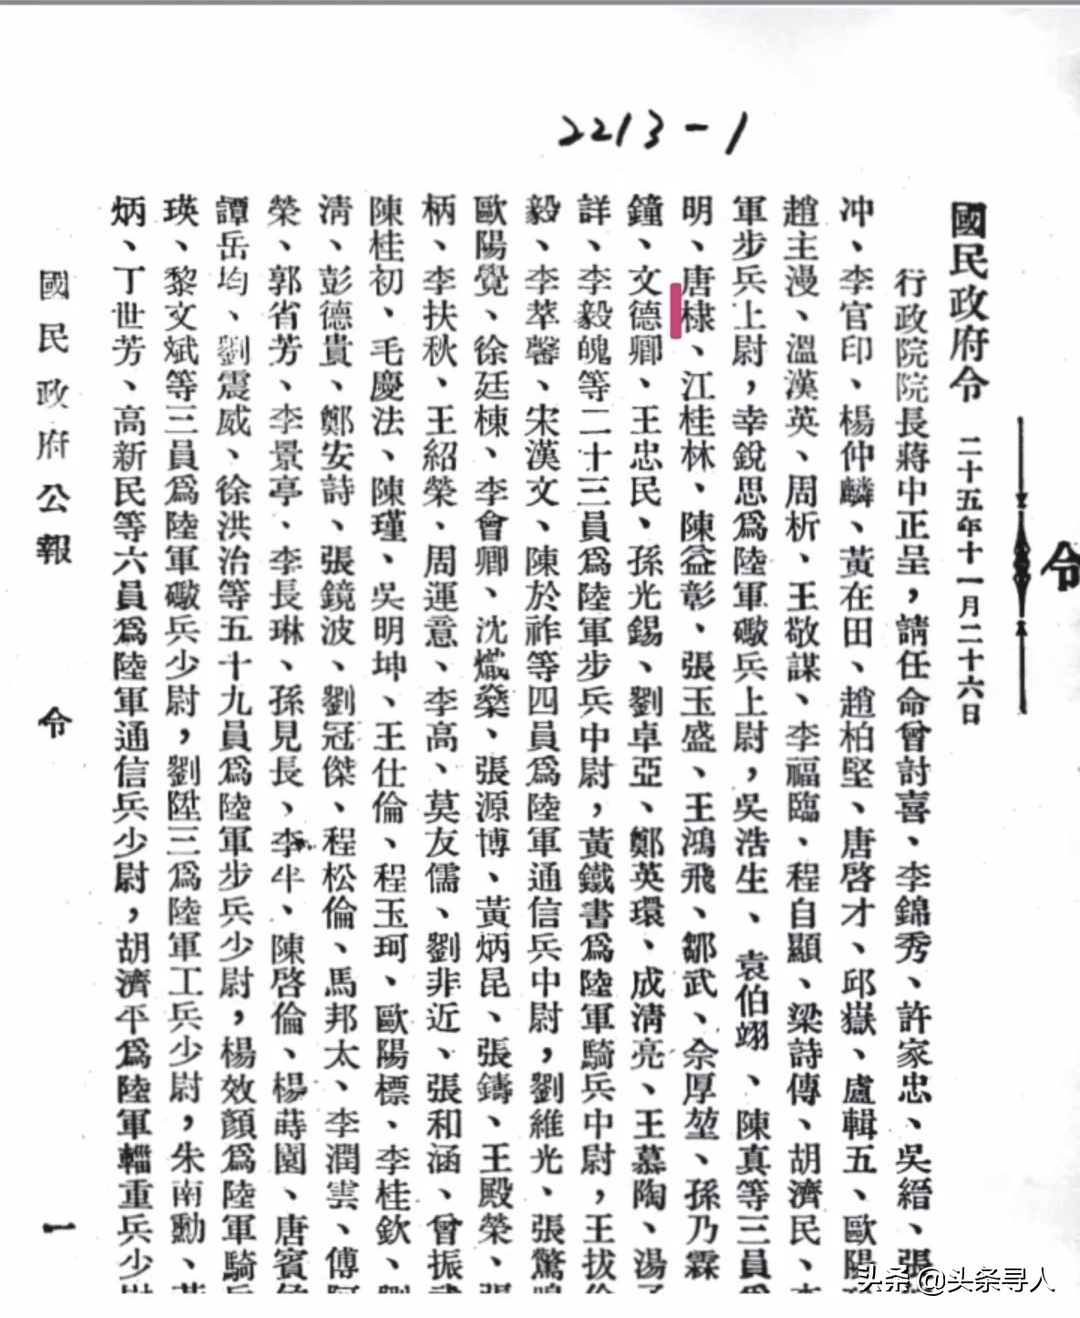 2213-1
令
國民政府令 二十五年十一月二十六日
行政院院長蔣中正呈，請任命曾討喜、李錦秀、許家忠、吳縉、張
冲、李官印、楊仲麟、黃在田、趙柏堅、唐啓才、邱嶽、盧輯五、歐陽
趙主漫、溫漢英、周析、王敬謀、李福臨、程自顯、梁詩傳、胡濟民、李
軍步兵上尉，幸銳思爲陸軍礮兵上尉，吳浩生、袁伯翊、陳真等三員爲
明、唐棣、江桂林、陳益彰、張玉盛、王鴻飛、鄒武、佘厚堃、孫乃霖
鐘、文德卿、王忠民、孫光錫、劉卓亞、鄭英環、成淸亮、王慕陶、湯子
詳、李毅魄等二十三員爲陸軍步兵中尉，黃鐵書爲陸軍騎兵中尉，王拔
毅、李萃馨、宋漢文、陳於祚等四員爲陸軍通信兵中尉，劉維光、張驚鳴
歐陽覺、徐廷棟、李會卿、沈熾燊、張源博、黃炳昆、張鑄、王殿榮、張
柄、李扶秋、王紹榮、周運意、李高、莫友儒、劉非近、張和涵、曾振武
陳桂初、毛慶法、陳瑾、吳明坤、王仕倫、程玉珂、歐陽標、李桂欽、劉
淸、彭德貴、鄭安詩、張鏡波、劉冠傑、程松倫、馬邦太、李潤雲、傅
榮、郭省芳、李景亭、李長琳、孫見長、李斗、陳啓倫、楊蒔園、唐賓侯
譚岳均、劉震威、徐洪治等五十九員爲陸軍步兵少尉，楊效顏爲陸軍騎兵
瑛、黎文斌等三員爲陸軍礮兵少尉，劉陞三爲陸軍工兵少尉，朱南勳、黃
炳、丁世芳、高新民等六員爲陸軍通信兵少尉，胡濟平爲陸軍輜重兵少尉
國民政府公報 令 一
头条 @头条寻人